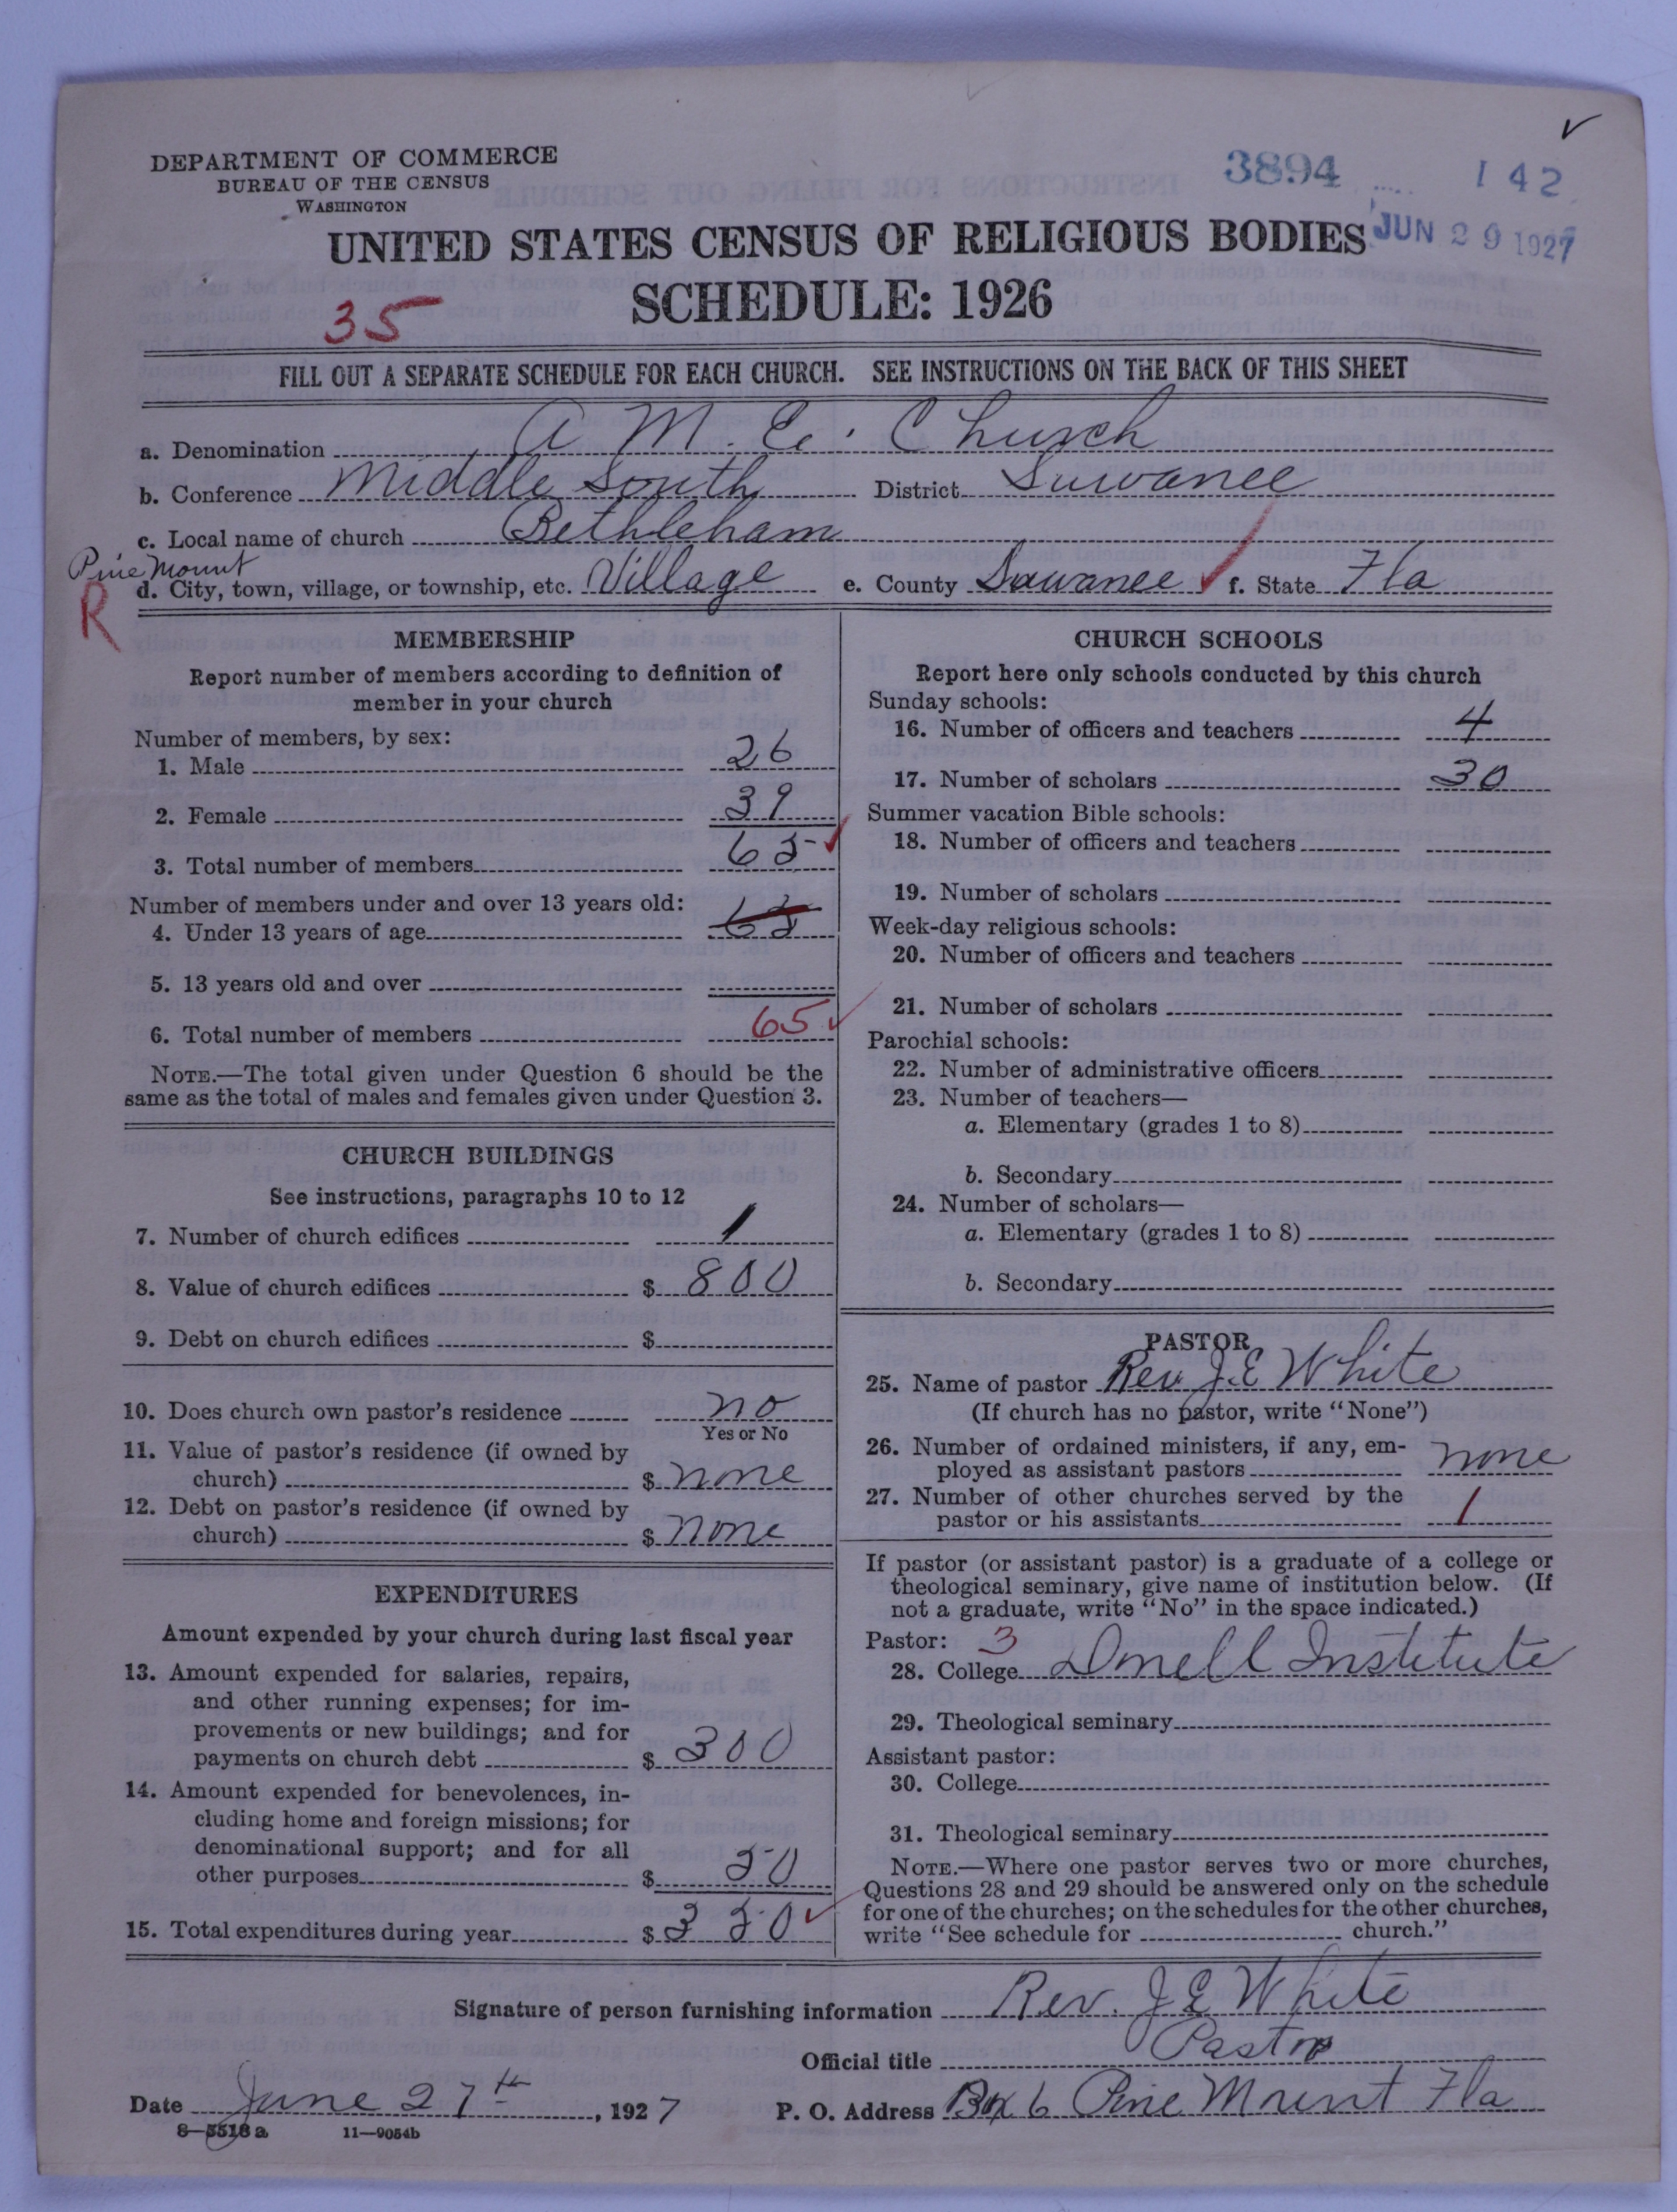 DEPARTMENT OF COMMERCE
BUREAU OF THE CENSUS
WASHINGTON
3894
142
JUN 29 1927
UNITED STATES CENSUS OF RELIGIOUS BODIES
SCHEDULE: 1926
35
FILL OUT A SEPARATE SCHEDULE FOR EACH CHURCH. SEE INSTRUCTIONS ON THE BACK OF THIS SHEET
a. Denomination A. M. E. Church
b. Conference Middle South District Suwanee
c. Local name of church Bethleham
Pine Mount
R
d. City, town, village, or township, etc. Village e. County Suwanee f. State Fla
MEMBERSHIP
Report number of members according to definition of
member in your church
Number of members, by sex:
1. Male 26
2. Female 39
3. Total number of members 65
Number of members under and over 13 years old:
4. Under 13 years of age 65
5. 13 years old and over
6. Total number of members 65
NOTE.—The total given under Question 6 should be the
same as the total of males and females given under Question 3.
CHURCH BUILDINGS
See instructions, paragraphs 10 to 12
7. Number of church edifices 1
8. Value of church edifices $ 800
9. Debt on church edifices $
10. Does church own pastor's residence no
Yes or No
11. Value of pastor's residence (if owned by
church) $ none
12. Debt on pastor's residence (if owned by
church) $ none
EXPENDITURES
Amount expended by your church during last fiscal year
13. Amount expended for salaries, repairs,
and other running expenses; for im-
provements or new buildings; and for
payments on church debt $ 300
14. Amount expended for benevolences, in-
cluding home and foreign missions; for
denominational support; and for all
other purposes $ 50
15. Total expenditures during year $ 350
CHURCH SCHOOLS
Report here only schools conducted by this church
Sunday schools:
16. Number of officers and teachers 4
17. Number of scholars 30
Summer vacation Bible schools:
18. Number of officers and teachers
19. Number of scholars
Week-day religious schools:
20. Number of officers and teachers
21. Number of scholars
Parochial schools:
22. Number of administrative officers
23. Number of teachers—
a. Elementary (grades 1 to 8)
b. Secondary
24. Number of scholars—
a. Elementary (grades 1 to 8)
b. Secondary
PASTOR
25. Name of pastor Rev. J. E White
(If church has no pastor, write "None")
26. Number of ordained ministers, if any, em-
ployed as assistant pastors none
27. Number of other churches served by the
pastor or his assistants 1
If pastor (or assistant pastor) is a graduate of a college or
theological seminary, give name of institution below. (If
not a graduate, write "No" in the space indicated.)
Pastor: 3
28. College Institute
29. Theological seminary
Assistant pastor:
30. College
31. Theological seminary
NOTE.—Where one pastor serves two or more churches,
Questions 28 and 29 should be answered only on the schedule
for one of the churches; on the schedules for the other churches,
write "See schedule for church."
Signature of person furnishing information Rev. J E White
Official title Pastor
Date June 27th, 1927 P. O. Address Box 6 Pine Mount Fla
8—5518a 11—9054b